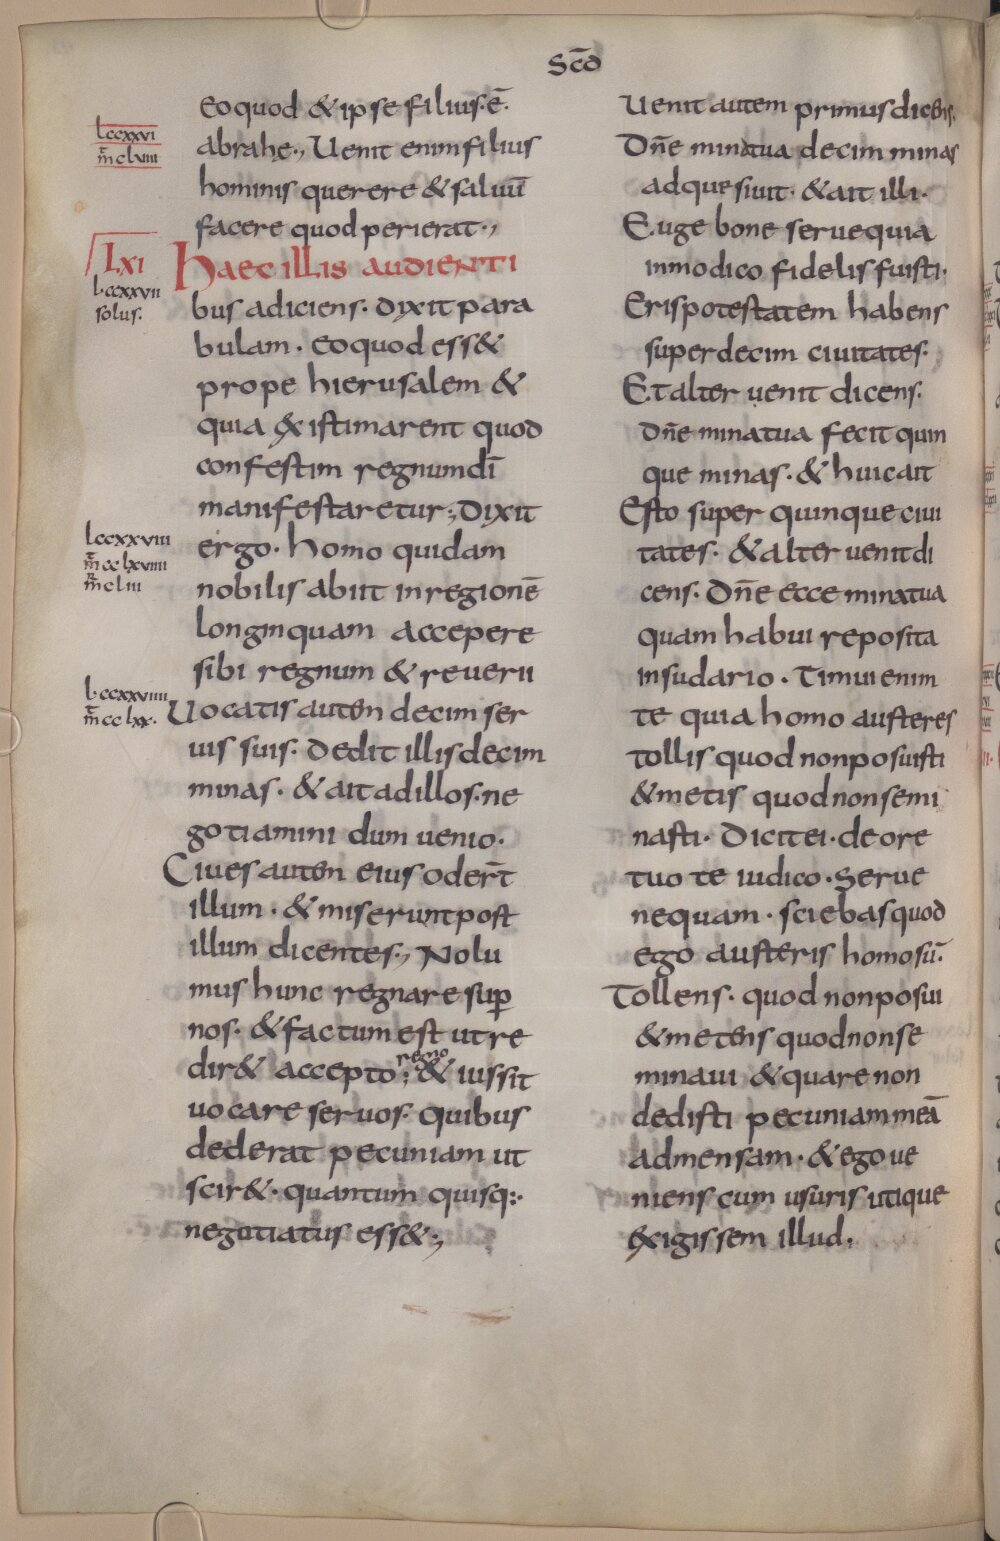 Scd̄
lccxxvi
m̄ clviii
eo quod & ipse filius·ē·
abrahę·, Uenit enim filius
hominis querere & saluū
facere quod perierat·,
LXI
lccxxvii
solus.
Haec illis audienti
bus adiciens· dixit para
bulam· eo quod ess&
prope hierusalem &
quia ęxistimarent quod
confestim regnum dī
manifestaretur; Dixit
lccxxviii
m̄ cclxviiii
m̄ cliii
ergo· homo quidam
nobilis abiit in regionē
longinquam accepere
sibi regnum & reuerii
lccxxviiii
m̄ cclxx.
Uocatis auten decim ser
uis suis· dedit illis decim
minas· & ait ad illos· ne
gotiamini dum uenio·
Ciues auten eius odert̄
illum· & miserunt post
illum dicentes·, Nolu
mus hunc regnare sup̄
nos· & factum est ut re
regno
dir& accepto; & iussit
uocare seruos· quibus
dederat pecuniam ut
scir&· quantum quisq:·
negotiatus ess&·,
Uenit autem primus dicens·
Dn̄e mina tua decim minas
adquesiuit· & ait illi·
Euge bone serue quia
in modico fidelis fuisti·
Eris potestatem habens
super decim ciuitates·
Et alter uenit dicens·
Dn̄e mina tua fecit quin
que minas· & huic ait
Esto super quinque ciui
tates· & alter uenit di
cens· Dn̄e ecce mina tua
quam habui reposita
in sudario· Timui enim
te quia homo austeres
tollis quod non posuisti
& metis quod non semi
nasti· Dicit ei· de ore
tuo te iudico· Serue
nequam· sciebas quod
ego austeris homo sū·
Tollens· quod non posui
& metens quod non se
minaui & quare non
dedisti pecuniam meā
ad mensam· & ego ue
niens cum usuris utique
ęxigissem illud·